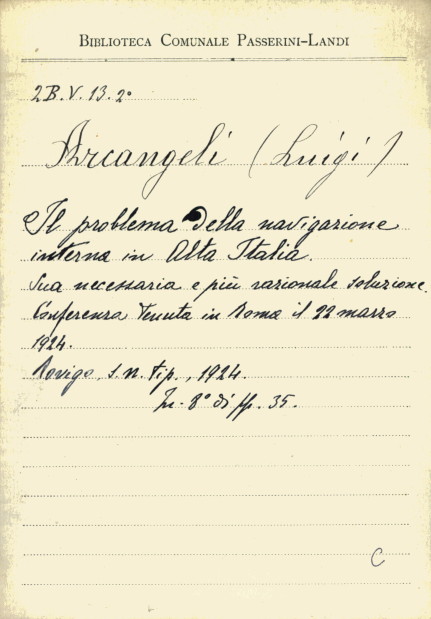 BIBLIOTECA COMUNALE PASSERINI-LANDI
2B.V.13.2º
Arcangeli (Luigi)
Il problema della navigazione
interna in Alta Italia.
Sua necessaria e più razionale soluzione.
Conferenza Tenuta in Roma il 22 marzo
1924.
Rovigo, s. n. tip., 1924.
In-8º di pp. 35.
C